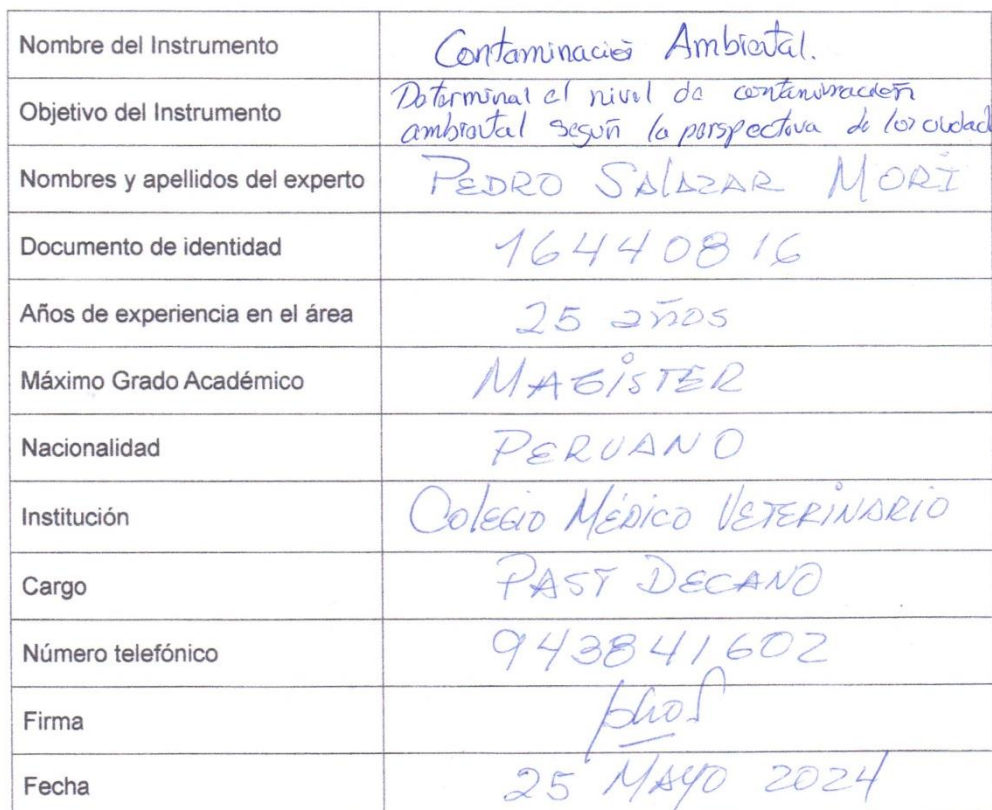 Nombre del Instrumento Contaminación Ambiental.
Objetivo del Instrumento Determinal el nivel de contaminación
ambiental según la perspectiva de los ciudad
Nombres y apellidos del experto PEDRO SALAZAR MORI
Documento de identidad 16440816
Años de experiencia en el área 25 años
Máximo Grado Académico MAGISTER
Nacionalidad PERUANO
Institución Colegio Médico VETERINARIO
Cargo PAST DECANO
Número telefónico 943841602
Firma
Fecha 25 MAYO 2024